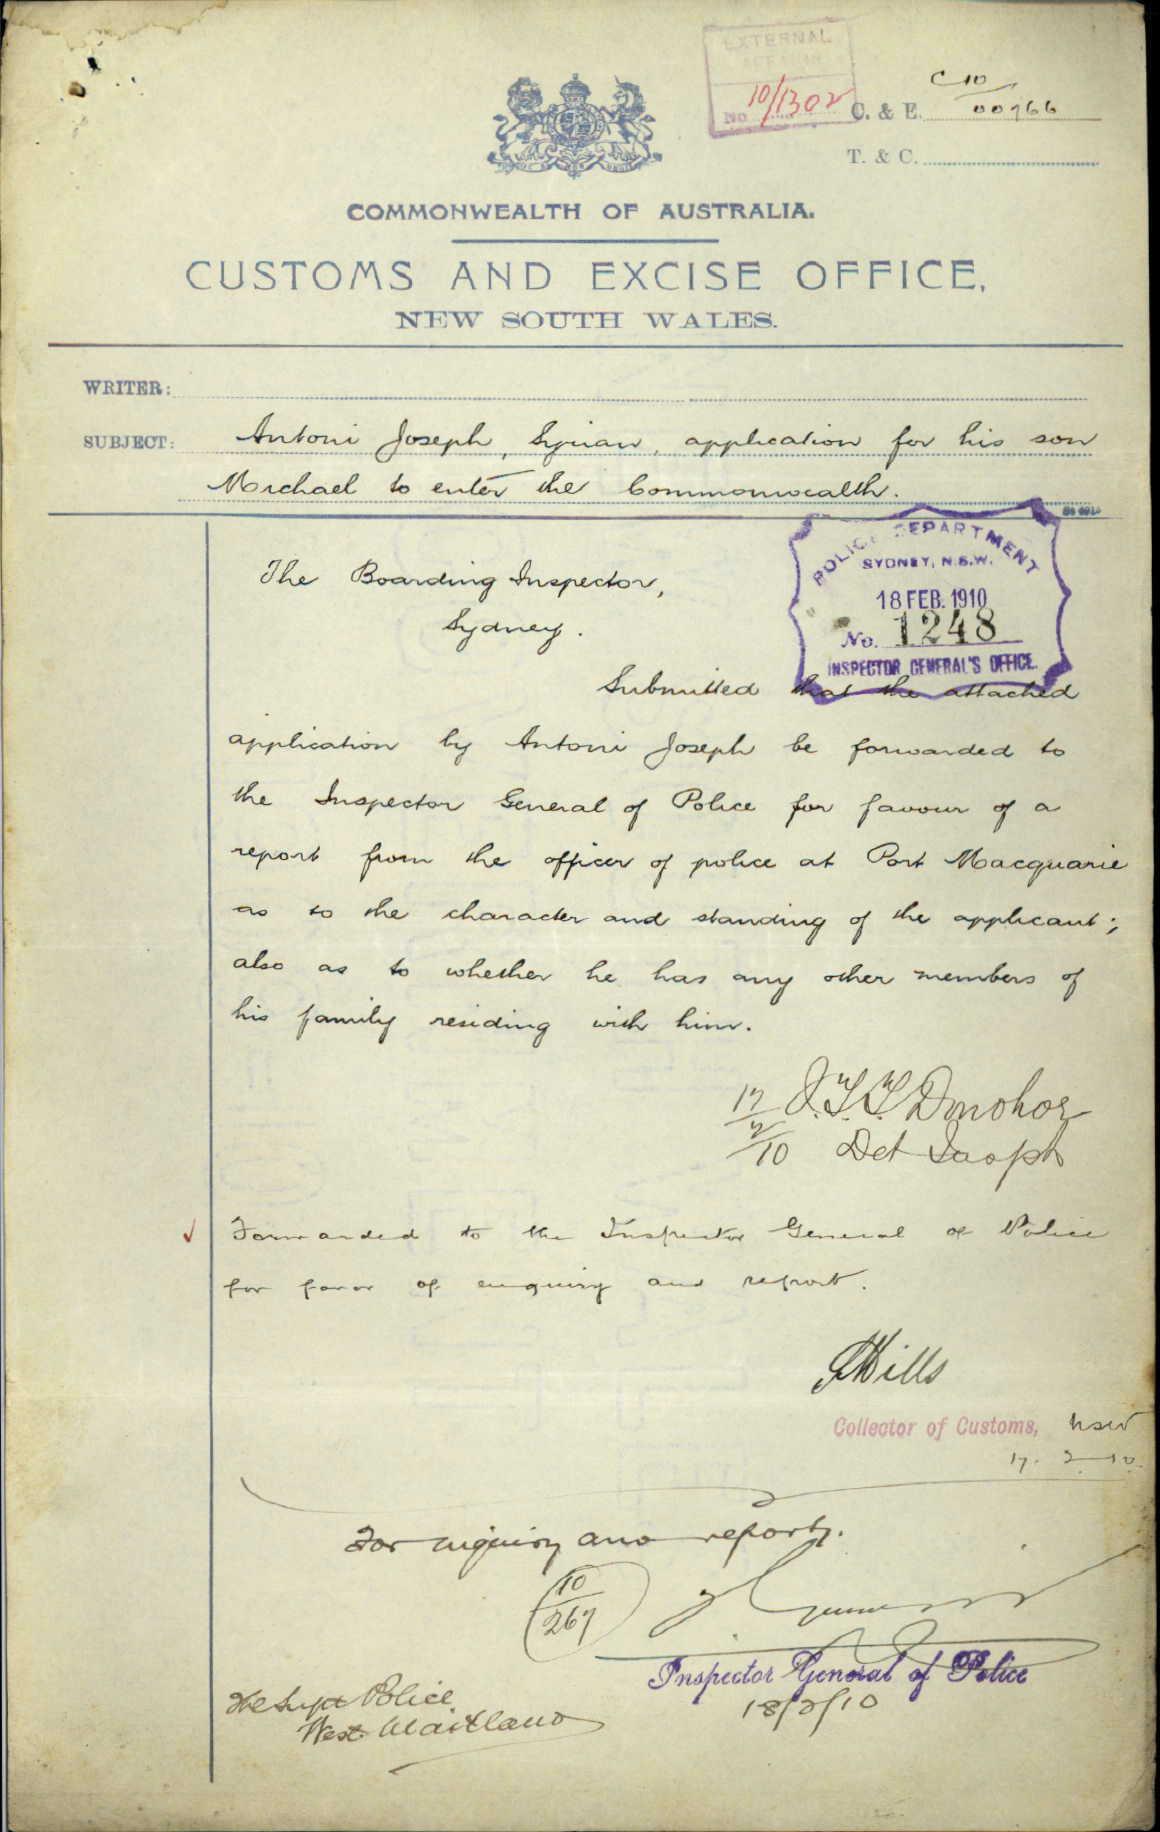 EXTERNAL
AFFAIRS
No 10/1302
C. & E. C 10/00966
T. & C.
COMMONWEALTH OF AUSTRALIA.
CUSTOMS AND EXCISE OFFICE,
NEW SOUTH WALES.
WRITER:
SUBJECT: Antoni Joseph, Syrian, application for his son
Michael to enter the Commonwealth.
The Boarding Inspector,
Sydney.
POLICE DEPARTMENT
SYDNEY, N.S.W.
18 FEB. 1910
No. 1248
INSPECTOR GENERAL'S OFFICE.
Submitted that the attached
application by Antoni Joseph be forwarded to
the Inspector General of Police for favour of a
report from the officer of police at Port Macquarie
as to the character and standing of the applicant;
also as to whether he has any other members of
his family residing with him.
17/2/10 J.T.T. Donohoe
Det Insptr
Forwarded to the Inspector General of Police
for favor of enquiry and report.
Mills
Collector of Customs, NSW
17. 2. 10.
For inquiry and report.
10/267
Inspector General of Police
18/2/10
The Supt Police
West Maitland